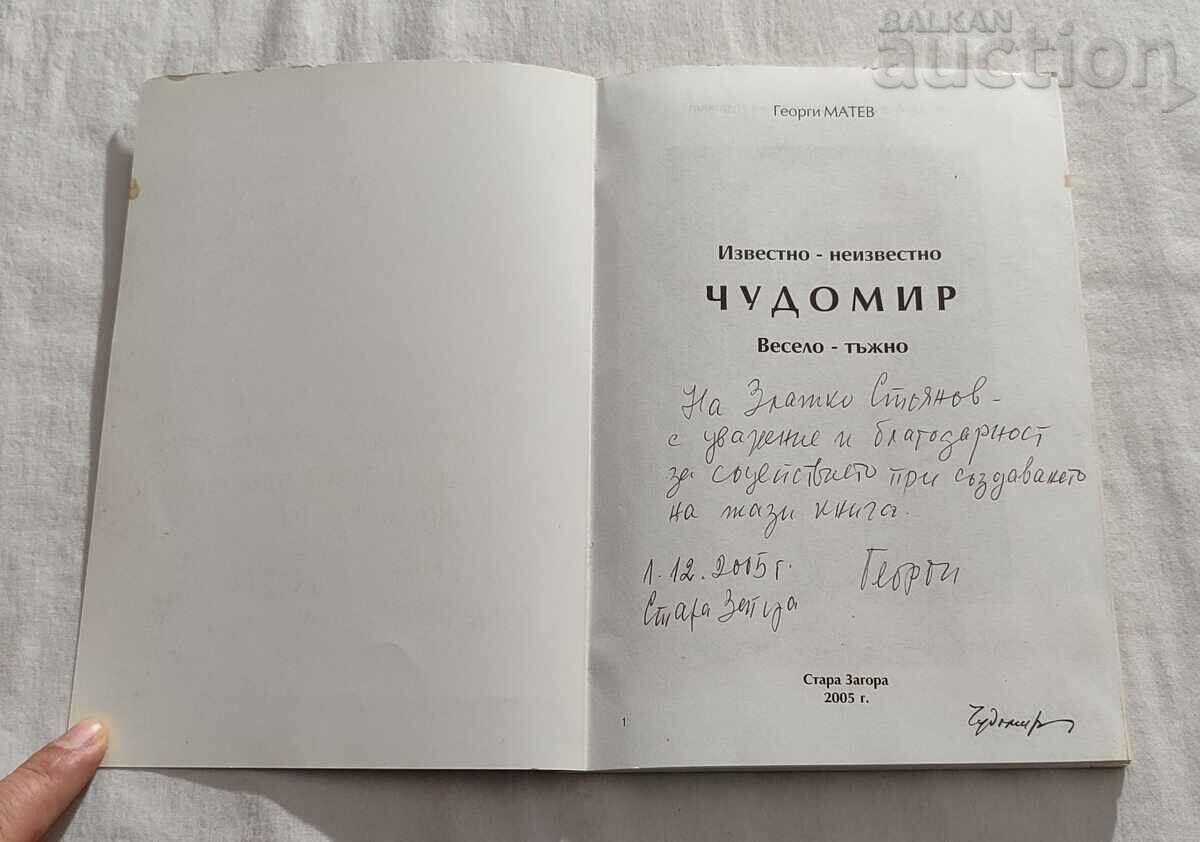 BALKAN
auction
Георги МАТЕВ
Известно - неизвестно
ЧУДОМИР
Весело - тъжно
На Златко Стоянов -
с уважение и благодарност
за съдействието при създаването
на тази книга.
1.12.2005 г. Георги
Стара Загора
Стара Загора
2005 г.
1
Чудомир